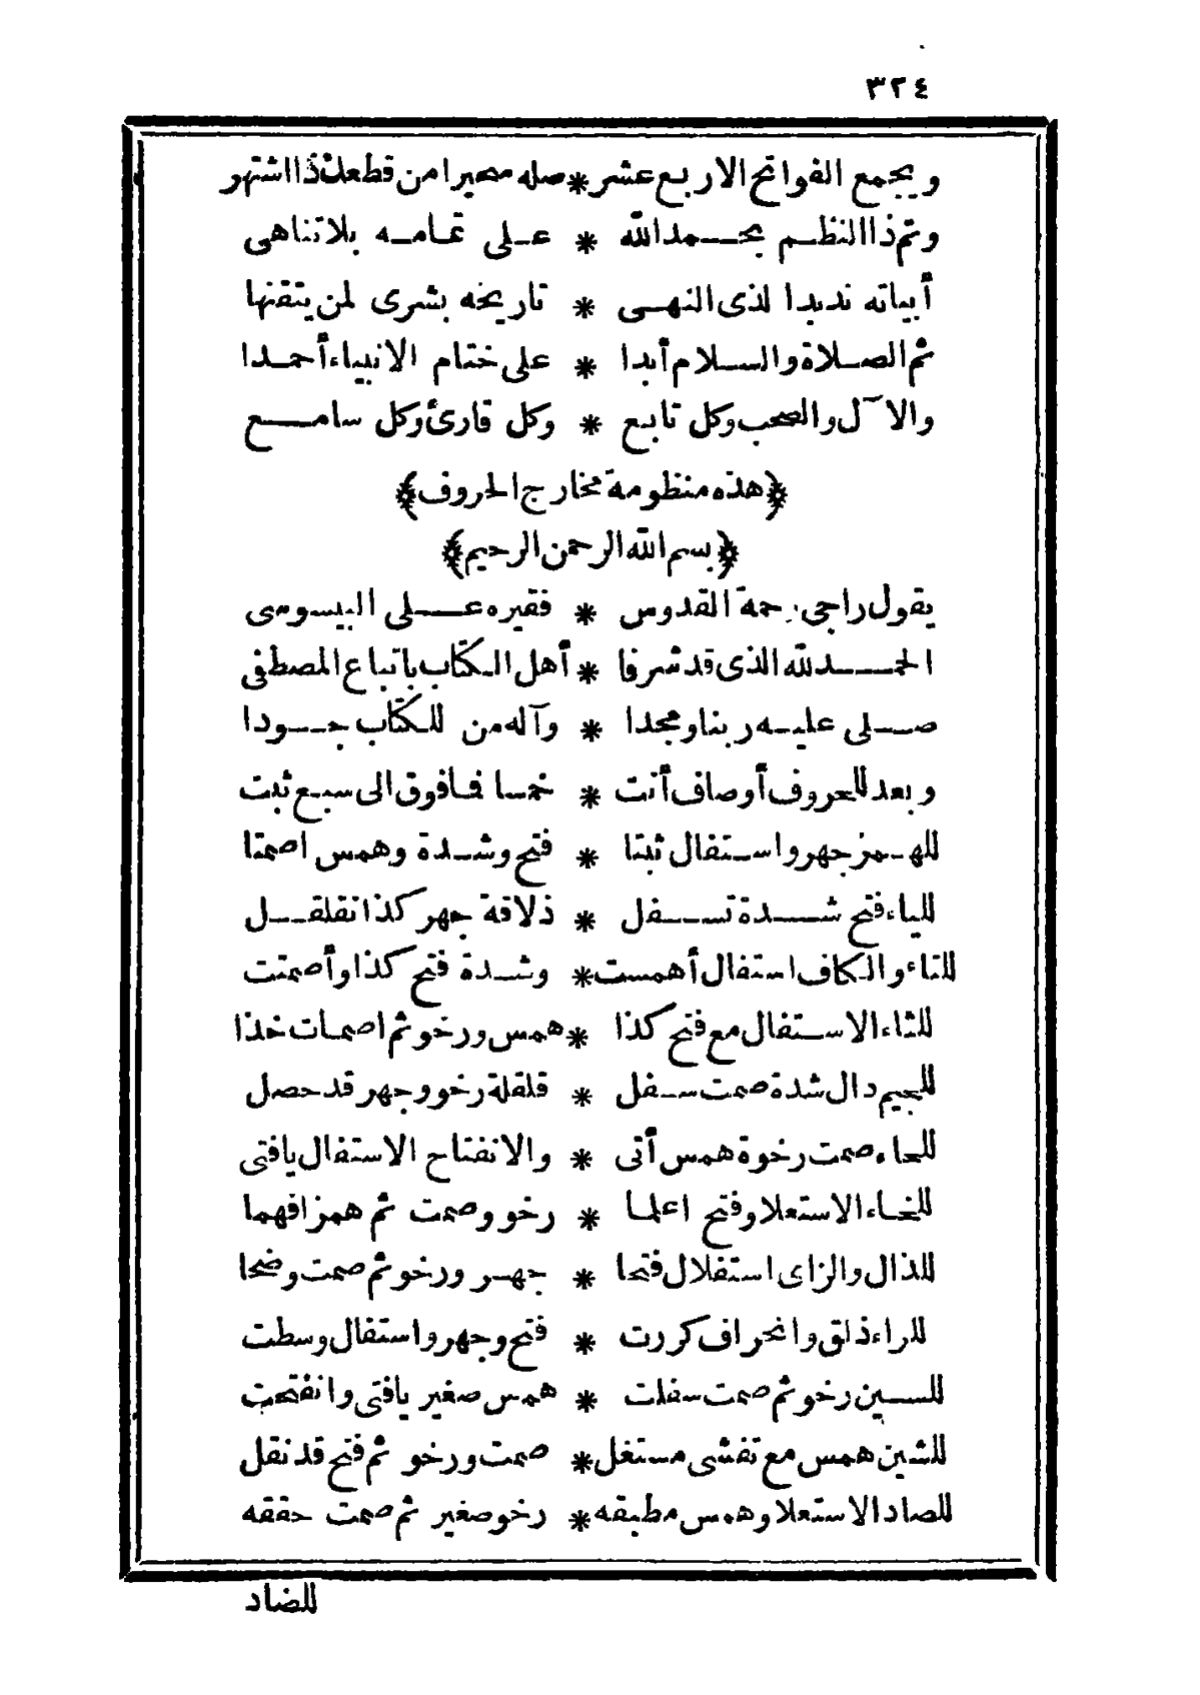 ٣٢٤
ويجمع الفواتح الاربع عشر * صله سحيرا من قطعك ذا اشتهر
وتم ذا النظم بحمد الله * على تمامه بلا تناهى
أبياته ندبدا لذى النهى * تاريخه بشرى لمن يتقنها
ثم الصلاة والسلام أبدا * على ختام الانبياء أحمدا
والآل والصحب وكل تابع * وكل قارئ وكل سامع
﴿هذه منظومة مخارج الحروف﴾
﴿بسم الله الرحمن الرحيم﴾
يقول راجى رحمة القدوس * فقيره على البيسوسى
الحمد لله الذى قد شرفا * أهل الكتاب باتباع المصطفى
صلى عليه ربنا ومجدا * وآله من للكتاب جودا
وبعد للحروف أوصاف أتت * خمسا فما فوق الى سبع ثبت
للهمز جهر واستفال ثبتا * فتح وشدة وهمس اصمتا
للباء فتح شدة تسفل * ذلاقة جهر كذا تقلقل
للتاء والكاف استفال أهمست * وشدة فتح كذا وأصمتت
للثاء الاستفال مع فتح كذا * همس ورخو ثم اصمات خذا
للجيم دال شدة صمت سفل * قلقلة رخو وجهر قد حصل
للحاء صمت رخوة همس أتى * والانفتاح الاستفال يافتى
للخاء الاستعلا وفتح اعلما * رخو وصمت ثم همز افهما
للذال والزاى استفلال فتحا * جهر ورخو ثم صمت وضحا
للراء ذلق وانحراف كررت * فتح وجهر واستفال وسطت
للسين رخو ثم صمت سفلت * همس صغير يافتى وانفتحت
للشين همس مع تفشى مستغل * صمت ورخو ثم فتح قد نقل
للصاد الاستعلا وهمس مطبقه * رخو صغير ثم صمت حققه
للضاد